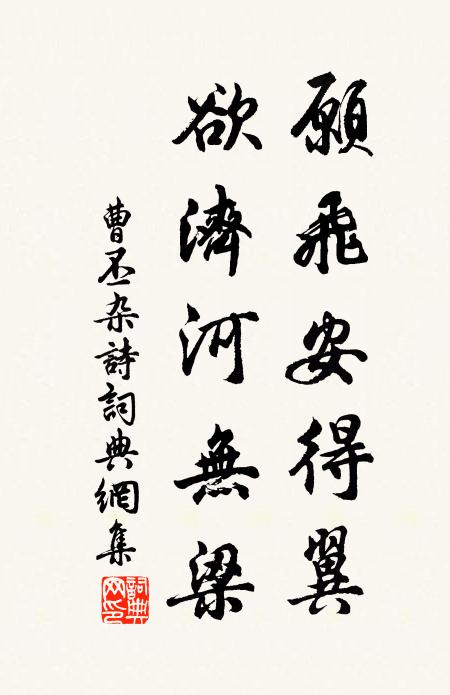 願飛安得翼
欲濟河無梁
曹丕杂詩詞典網集
詞典网印